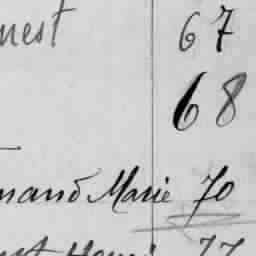 nest 67
68
nand Marie 70
77